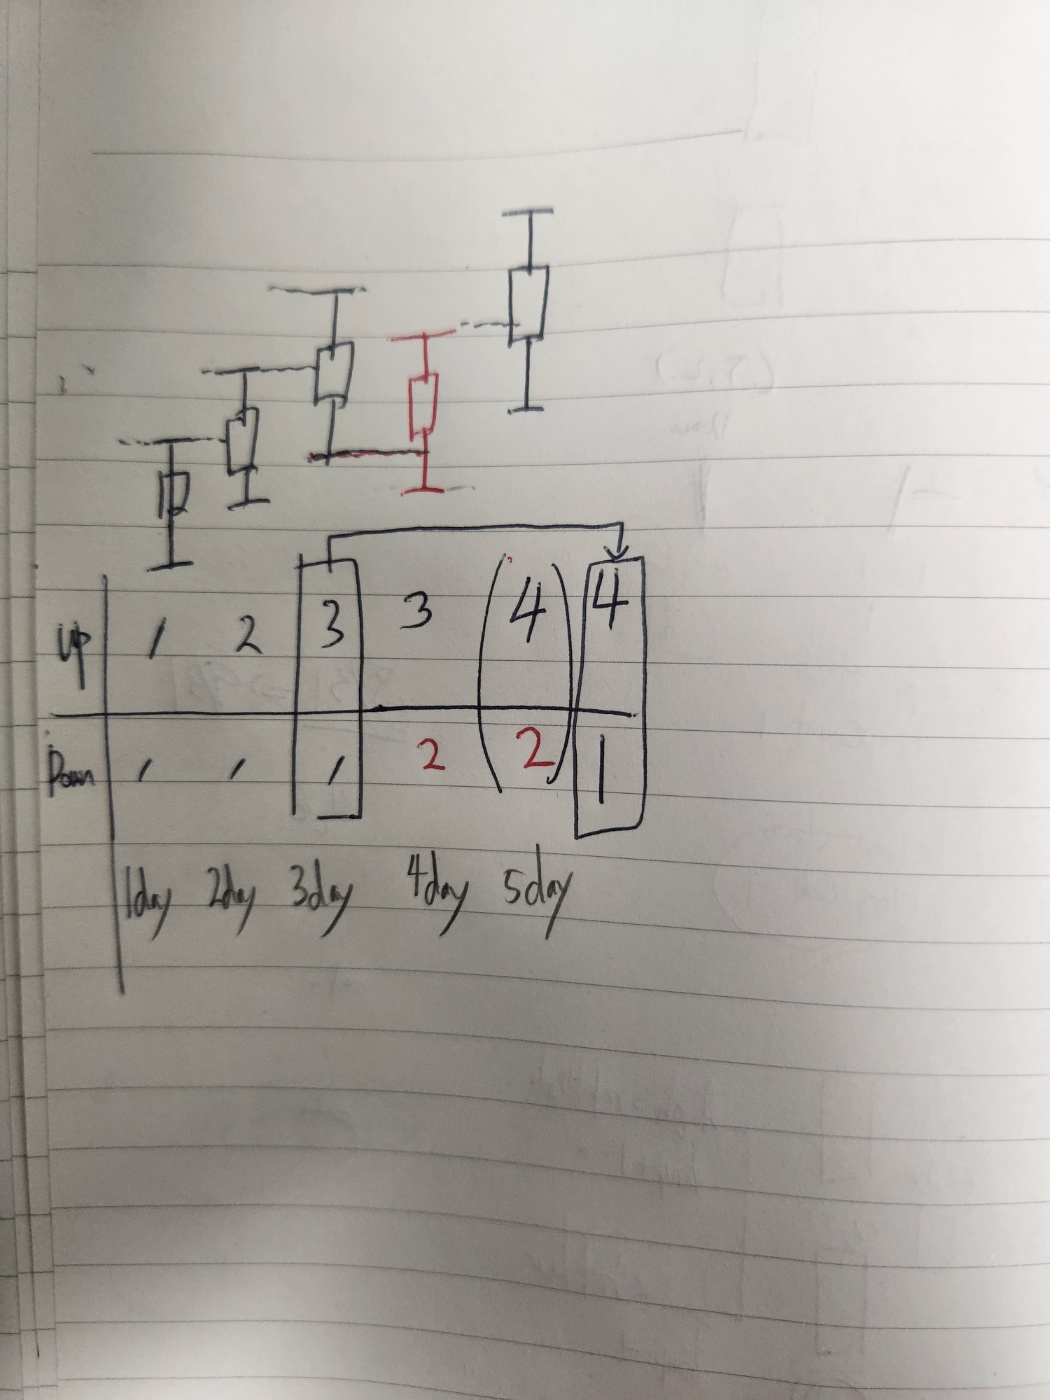 Up 1 2 3 3 (4) 4
Down 1 1 1 2 2 1
1day 2day 3day 4day 5day